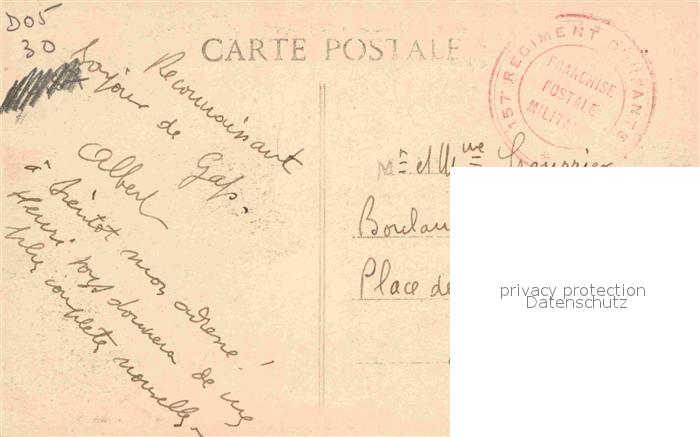 D05
30
CARTE POSTALE
157 REGIMENT D'INFANTERIE
FRANCHISE
POSTALE
MILITAIRE
Reconnaissant
bonjour de Gap.
Albert
à bientôt mon adresse!
Henri vous donnera de mes
plus complètes nouvelles
Mr et Mme
Place de
privacy protection
Datenschutz